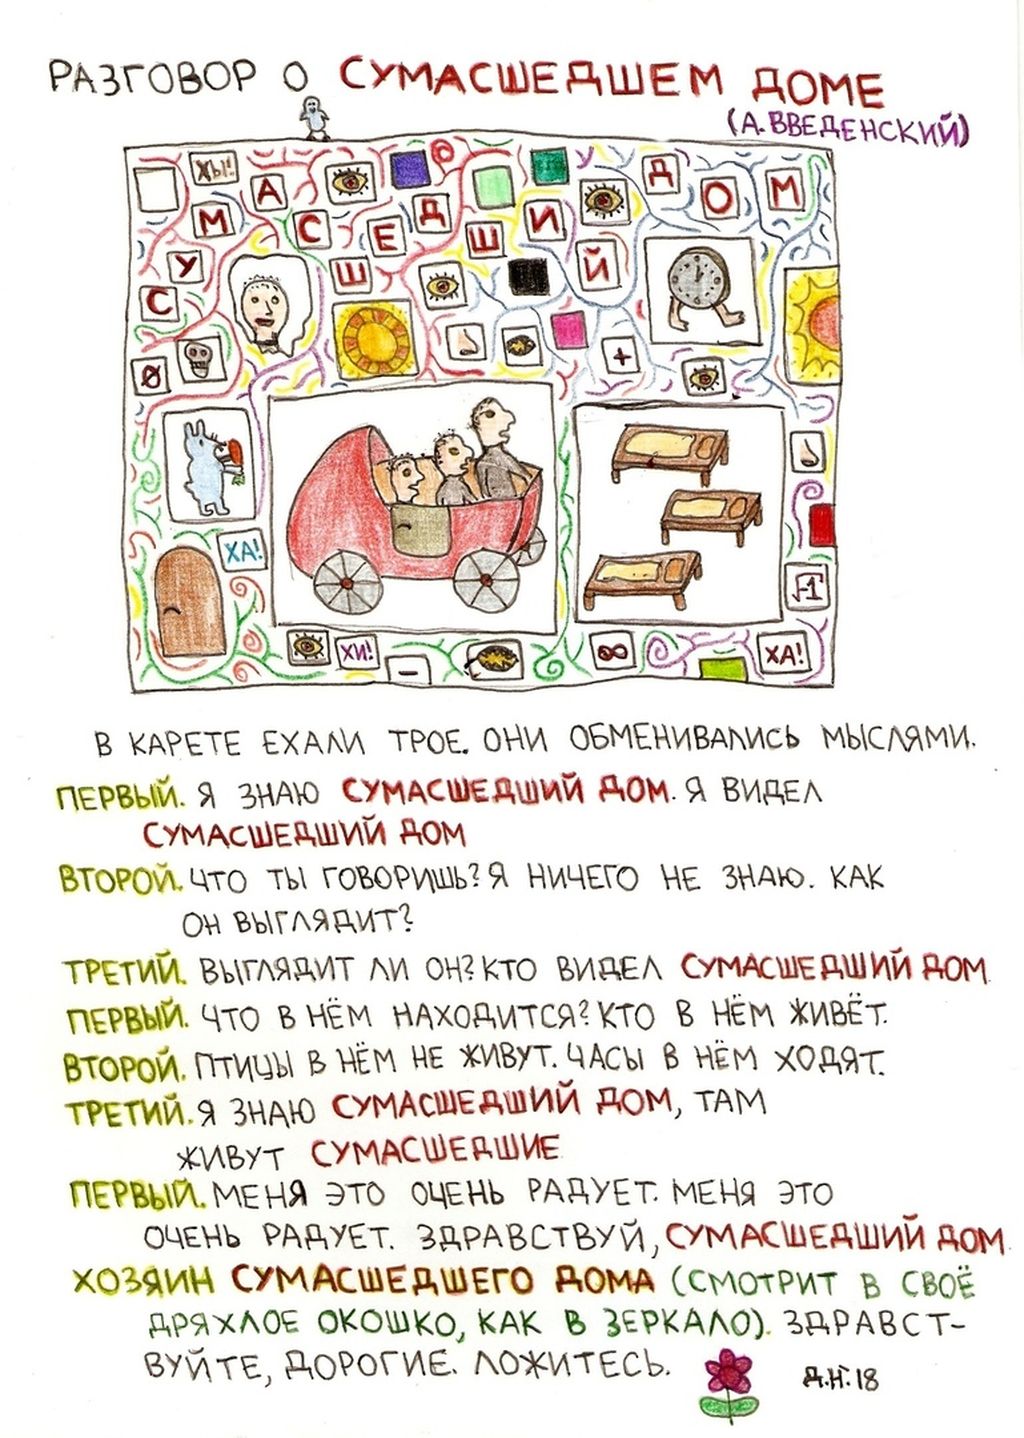 РАЗГОВОР О СУМАСШЕДШЕМ ДОМЕ
(А. ВВЕДЕНСКИЙ)
ХЫ!
СУМАСШЕДШИЙ ДОМ
0
+
ХА!
√-1
ХИ!
-
∞
ХА!
В КАРЕТЕ ЕХАЛИ ТРОЕ. ОНИ ОБМЕНИВАЛИСЬ МЫСЛЯМИ.
ПЕРВЫЙ. Я ЗНАЮ СУМАСШЕДШИЙ ДОМ. Я ВИДЕЛ
СУМАСШЕДШИЙ ДОМ
ВТОРОЙ. ЧТО ТЫ ГОВОРИШЬ? Я НИЧЕГО НЕ ЗНАЮ. КАК
ОН ВЫГЛЯДИТ?
ТРЕТИЙ. ВЫГЛЯДИТ ЛИ ОН? КТО ВИДЕЛ СУМАСШЕДШИЙ ДОМ.
ПЕРВЫЙ. ЧТО В НЁМ НАХОДИТСЯ? КТО В НЁМ ЖИВЁТ.
ВТОРОЙ. ПТИЦЫ В НЁМ НЕ ЖИВУТ. ЧАСЫ В НЁМ ХОДЯТ.
ТРЕТИЙ. Я ЗНАЮ СУМАСШЕДШИЙ ДОМ, ТАМ
ЖИВУТ СУМАСШЕДШИЕ
ПЕРВЫЙ. МЕНЯ ЭТО ОЧЕНЬ РАДУЕТ. МЕНЯ ЭТО
ОЧЕНЬ РАДУЕТ. ЗДРАВСТВУЙ, СУМАСШЕДШИЙ ДОМ.
ХОЗЯИН СУМАСШЕДШЕГО ДОМА (СМОТРИТ В СВОЁ
ДРЯХЛОЕ ОКОШКО, КАК В ЗЕРКАЛО). ЗДРАВСТ-
ВУЙТЕ, ДОРОГИЕ. ЛОЖИТЕСЬ.
Д.Н. 18